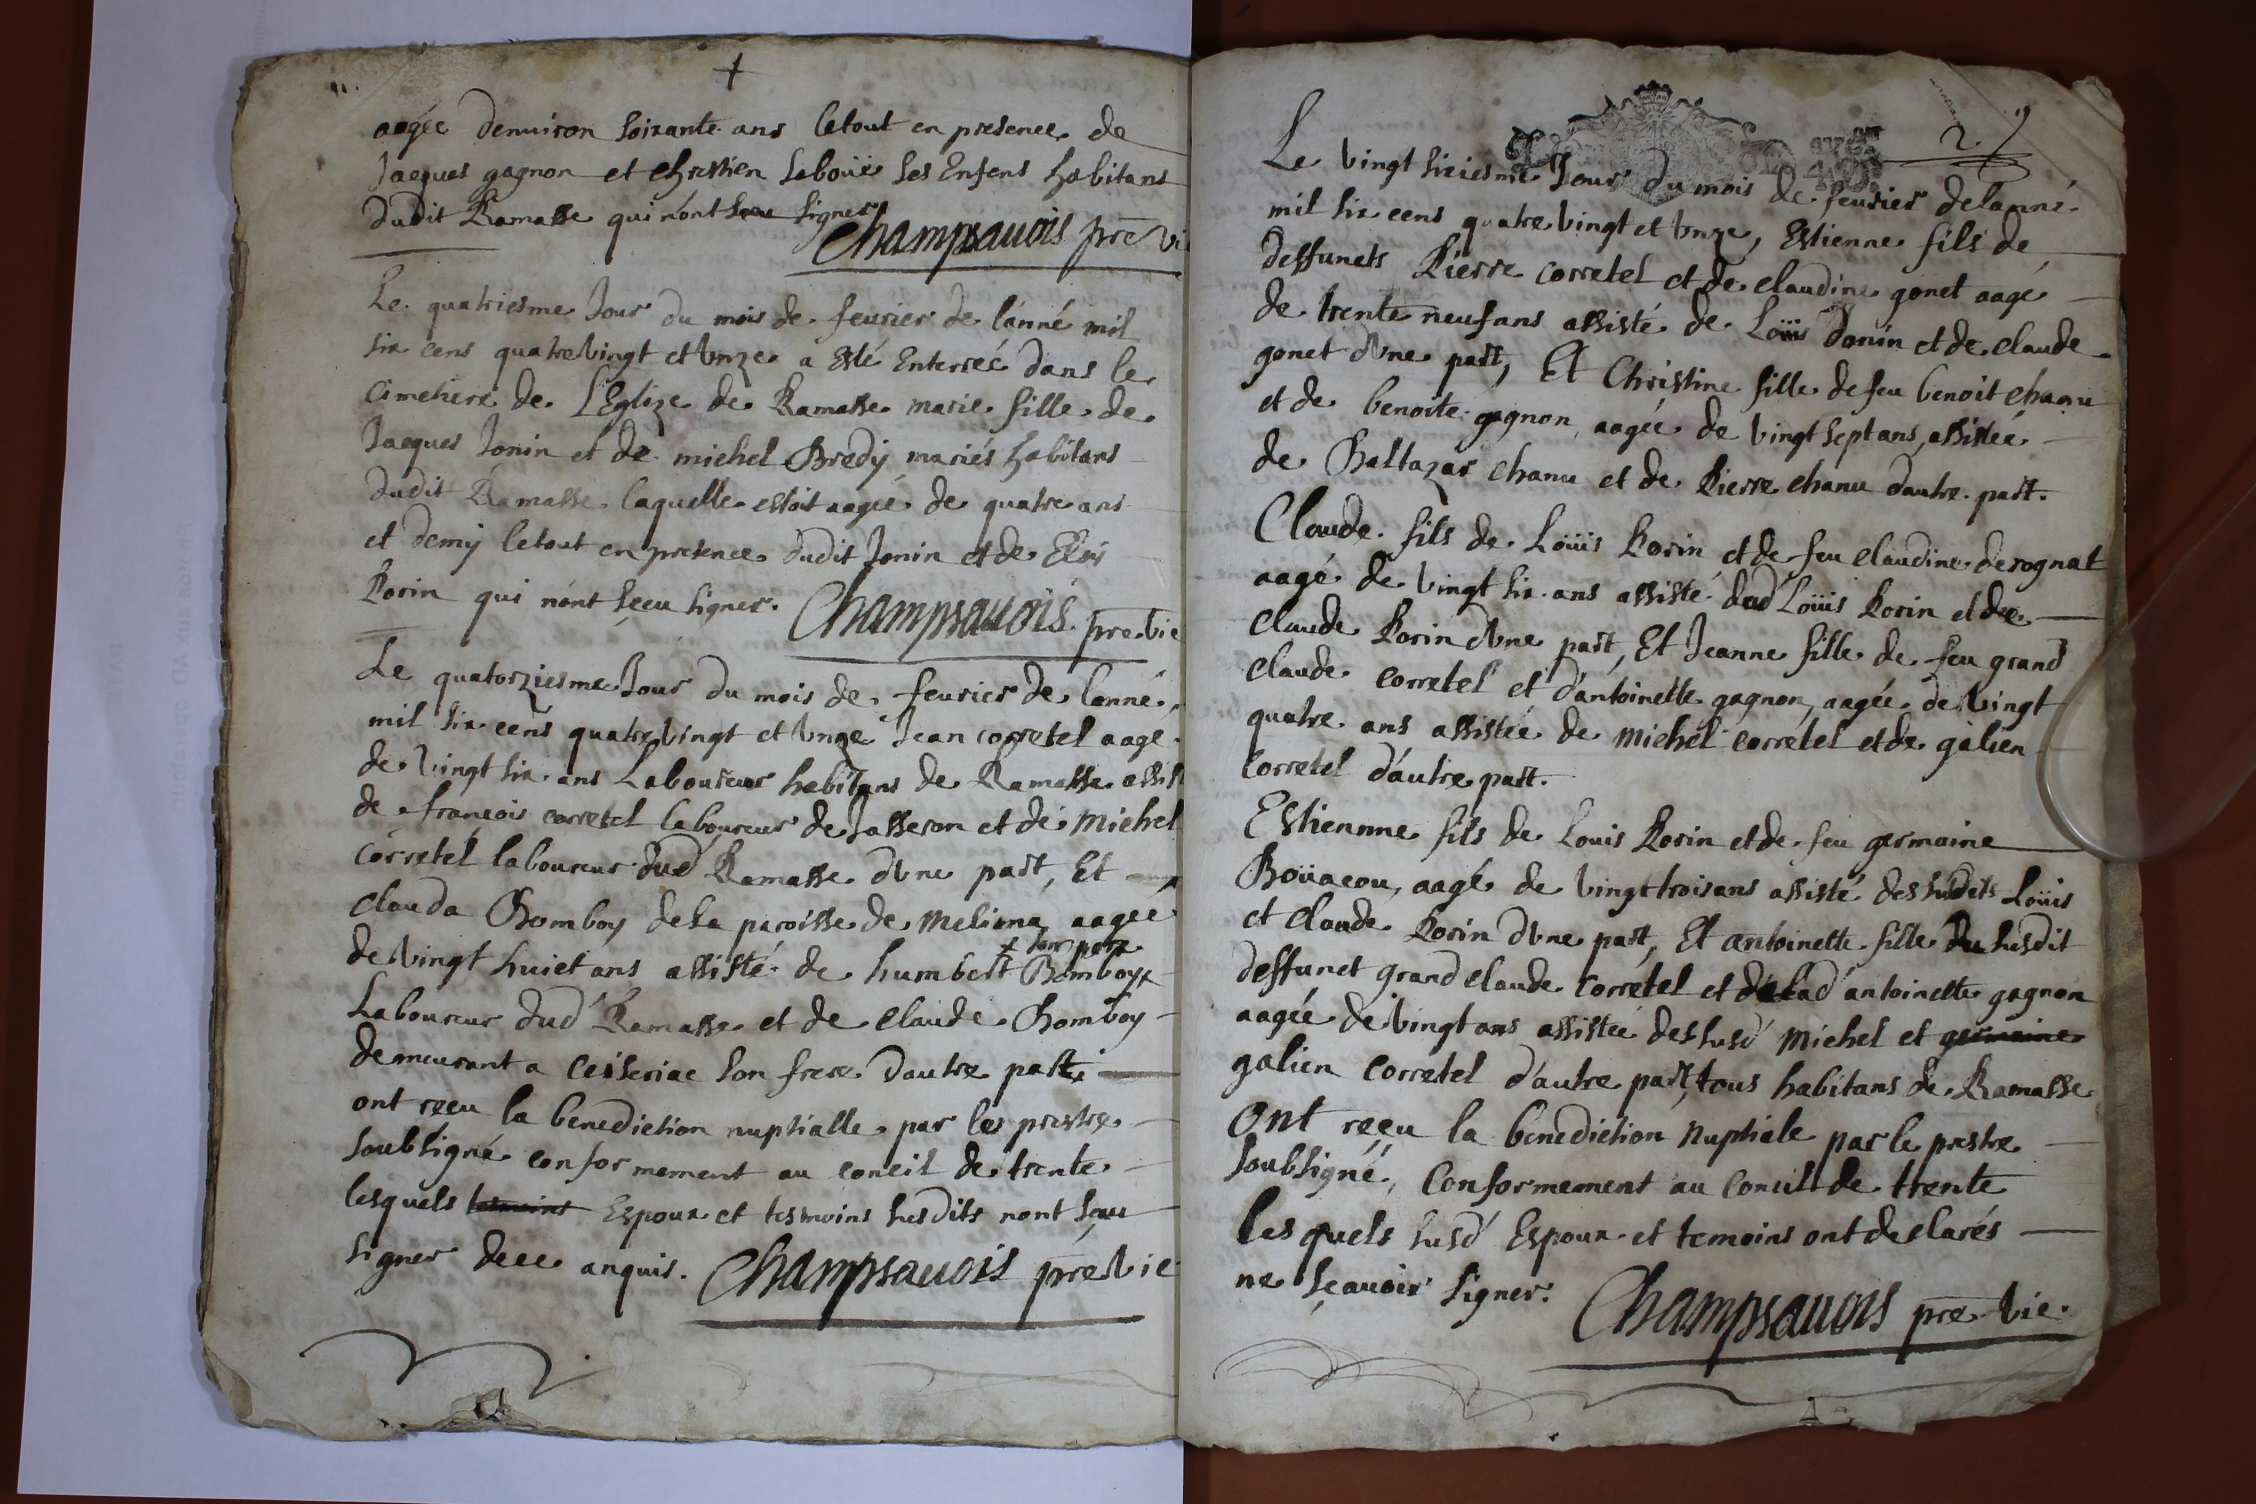 aagée denuiron soixante ans letout en presence de
Jacques gagnon et chrestien Leboüé ses Enfens habitans
dudit Ramasse qui n'ont sceu signer
Champsauois pre vi
Le quatriesme Jour du mois de feurier de l'anné mil
six cens quatrevingt et vnze a esté Enterréé dans le
Cimetiere de L'Eglize de Ramasse marie fille de
Jacques Jonin et de michel Bredy mariés habitans
dudit Ramasse laquelle estoit aagéé de quatre ans
et demy letout en presence dudit Jonin et de Eloy
Rorin qui n'ont sçeu signer. Champsauois pre vie
Le quatorziesme Jour du mois de feurier de lanné
mil six cens quatre vingt et vnze Jean corretel aagé
de vingt six ans Laboureur habitans de Ramasse assis
de françois corretel laboureur de Jasseron et de Michel
corretel laboureur dud Ramasse dvne part, Et
clauda Bomboy de la paroisse de meliona aagéé
+ son pere
de vingt huict ans assisté de humbert Bomboy+
Laboureur dud Ramasse et de claude Bomboy
demeurant a Ceiseriac son frere dautre part
ont reçeu la benediction nuptialle par le prestre
soubsigné conformement au concil de trente
lesquels temoins Espoux et tesmoins susdits nont sçeu
signer dece anquis. Champsauois pre vie
2
Le vingt sixiesme Jour du mois de feurier delanné
mil six cens quatre vingt et vnze, Estienne fils de
deffuncts Pierre corretel et de claudine gonet aagé
de trente neuf ans assisté de Loüis donin et de claude
gonet dvne part, Et Christine fille de feu benoit chanu
et de benoite gagnon aagéé de vingt sept ans, assistéé
de Baltazar chanu et de Pierre chanu dautre part.
Claude fils de Loüis Rorin et de feu claudine derognat
aagé de vingt six ans assisté dud Loüis Rorin et de
claude Rorin dvne part, Et Jeanne fille de feu grand
claude corretel et d'antoinette gagnon, aagée de vingt
quatre ans assistéé de michel corretel et de galien
corretel d'autre part.
Estiennne fils de Louis Rorin et de feu germaine
Boüacou, aagé de vingt trois ans assisté dessusdits Loüis
et claude Rorin dvne part, Et antoinette fille du susdit
deffunct grand claude Corretel et delad antoinette gagnon
aagée de vingt ans assistéé dessusd Michel et germaine
galien Corretel d'autre part, tous habitans de Ramasse
Ont reçeu la benediction Nuptiale par le prestre
soubsigné, Conformement au Concil de trente
lesquels susd Espoux et temoins ont declarés
ne sçauoir signer. Champsauois pre vie.